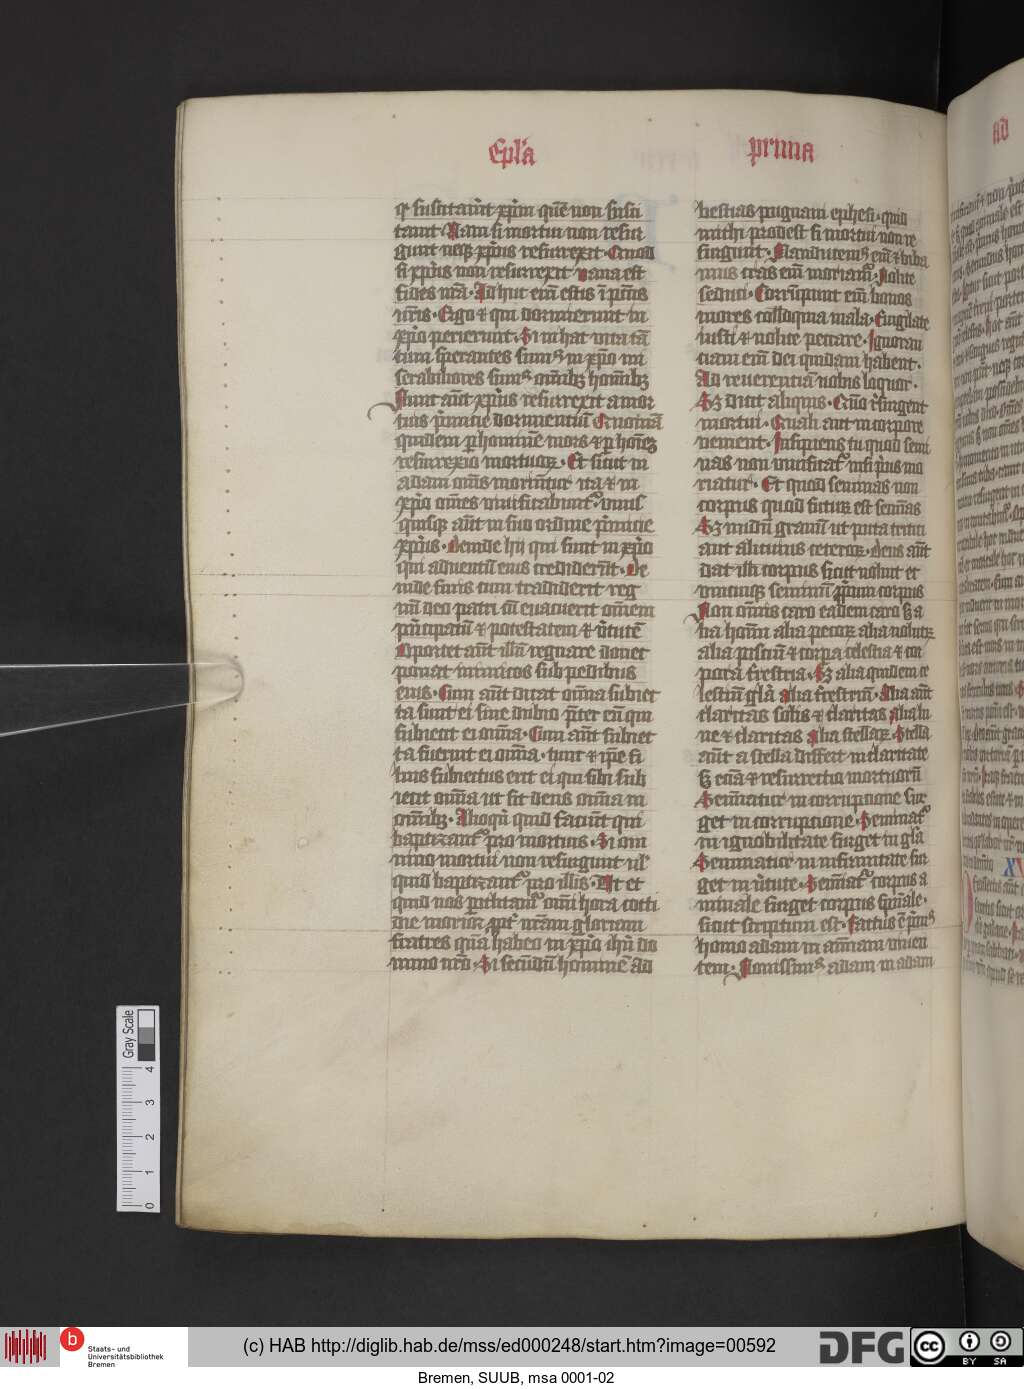 Epl'a prima
q' suscitau̅it xp̅m que̅ non susci
tauit Nam si mortui non resur
gunt neqꝫ xp̅us resurrexit. Quod
si xp̅us non resurrexit vana est
fides n̅ra. Adhuc eni̅ estis i̅ pcc̅is
v̅ris. Ergo ⁊ qui dormierunt in
xp̅o perierunt. Si in hac vita ta̅
tum sperantes sumꝰ in xp̅o mi
serabiliores sumꝰ om̅ibꝫ homi̅bꝫ
Nunc aut̅ xp̅us resurrexit a mor
tuis p̅micie dormientiu̅ Quonia̅
quidem ꝑ homine̅ mors ⁊ ꝑ ho̅iez
resurrexio mortuoꝝ. Et sicut in
adam om̅s moriu̅tur ita ⁊ in
xp̅o om̅es viuificabunt᷑. vnus
quisqꝫ aut̅ in suo ordine p̅micie
xp̅us. Deinde hij qui sunt in xp̅o
qui aduentu̅ eius crediderut̅. De
inde finis cum tradiderit reg
nu̅ deo patri cu̅ euacuerit om̅em
pn̅cipatu̅ ⁊ potestatem ⁊ v̅tute̅
Oportet aut̅ illu̅ regnare donec
ponat inimicos sub pedibus
eius. Cum aut̅ dicat om̅ia subiec
ta sunt ei sine dubio p̅ter eu̅ qui
subiecit ei om̅ia. Cum aut̅ subiec
ta fuerint ei om̅ia. tunc ⁊ ip̅e fi
lius subiectus erit ei qui sibi sub
iecit om̅ia ut sit deus om̅ia in
om̅ibꝫ. Alioqu̅ quid facient qui
baptizant᷑ pro mortuis. Si om
nino mortui non resurgunt ut
quid baptizant᷑ pro illis. Ut et
quid nos ꝑiclitamꝰ om̅i hora cotti
die morior ꝓpt᷑ vr̅am gloriam
fratres qua̅ habeo in xp̅o ih̅u do
mino nr̅o. Si secu̅du̅ homine̅ ad
bestias pugnaui ephesi. quid
michi prodest si mortui non re
surgunt. Manducemꝰ eni̅ ⁊ biba
mus cras eni̅ moriam᷑. Nolite
seduci. Corru̅punt eni̅ bonos
mores colloquia mala. Euigilate
iusti ⁊ nolite peccare. Ignoran
ciam eni̅ dei quidam habent.
Ad reuerentia̅ uobis loquor.
Sꝫ dicit aliquis. Quo̅ r̅surgent
mortui. Quali aut in corpore
uenient. Insipiens tu quod semi
nas non viuificat᷑ nisi p̅us mo
riatur. Et quod seminas non
corpus quod futuꝝ est semi̅as
Sꝫ nudu̅ granu̅ ut puta tritici
aut alicuius ceteroꝝ. Deus aut̅
dat illi corpus sicut uoluit et
vnicuiqꝫ seminu̅ ꝓprium corpus
Non om̅is caro eadem caro sꝫ a
lia homi̅u̅ alia pecoꝝ alia uolucꝝ
alia pisciu̅ ⁊ corpa celestia ⁊ cor
pora t̅restria. Sꝫ alia quidem ce
lestiu̅ gl̅a alia t̅restriu̅. Alia aut̅
claritas solis ⁊ claritas Alia lu
ne ⁊ claritas Alia stellaꝝ. Stella
aut̅ a stella differt in claritate
sꝫ eciā ⁊ resurrectio mortuoru̅
Seminatur in corrupcione sur
get in corrupcione. Seminat᷑
in ignobilitate surget in gl̅a
Seminatur in infirmitate sur
get in v̅tute. Semi̅at᷑ corpus a
nimale surget corpus spi̅ale.
sicut scriptum est. Factus e̅ p̅mꝰ
homo adam in a̅imam viuen
tem. Nouissimꝰ adam in adam
Ad
Gray Scale
4
3
2
1
0
b
Staats- und
Universitätsbibliothek
Bremen
(c) HAB http://diglib.hab.de/mss/ed000248/start.htm?image=00592
DFG
cc BY SA
Bremen, SUUB, msa 0001-02